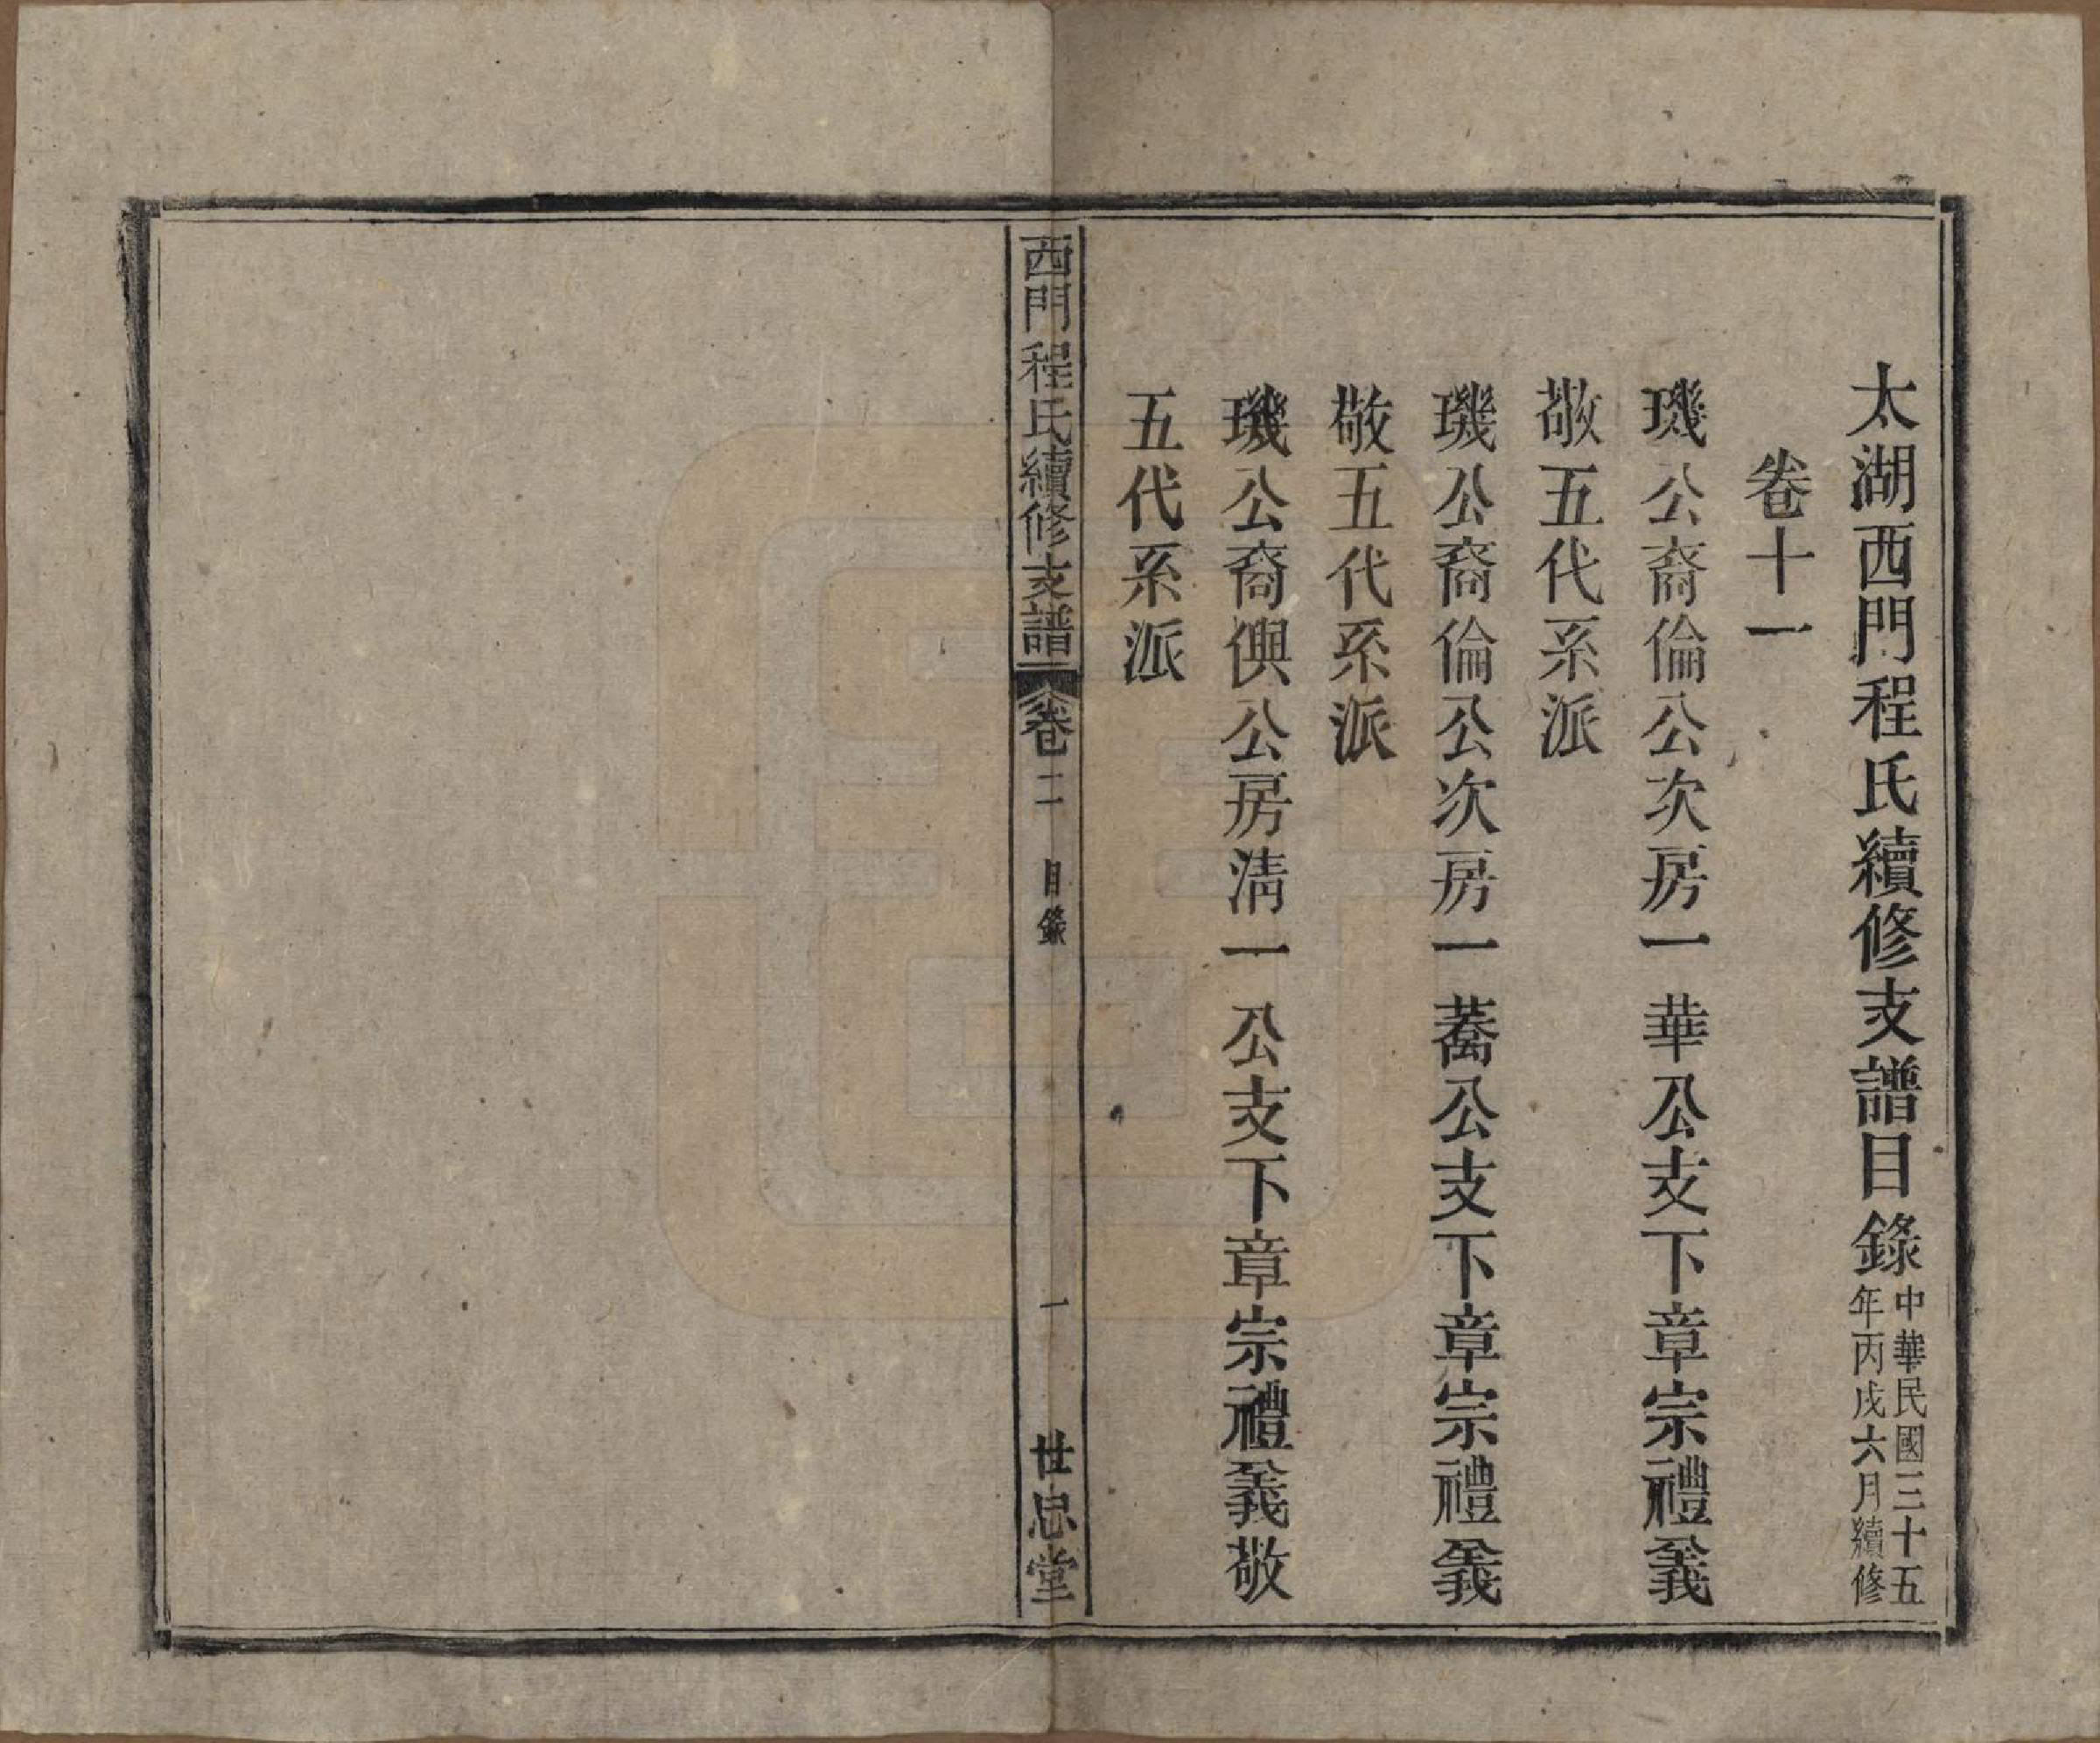 太湖西門程氏續修支譜目錄 中華民國三十五年丙戌六月續修
卷十一
璣公裔倫公次房一華公支下章宗禮義
敬五代系派
璣公裔倫公次房一蕎公支下章宗禮義
敬五代系派
璣公裔㒜公房清一公支下章宗禮義敬
五代系派
西門程氏續修支譜 卷十一 目錄 一 世忠堂